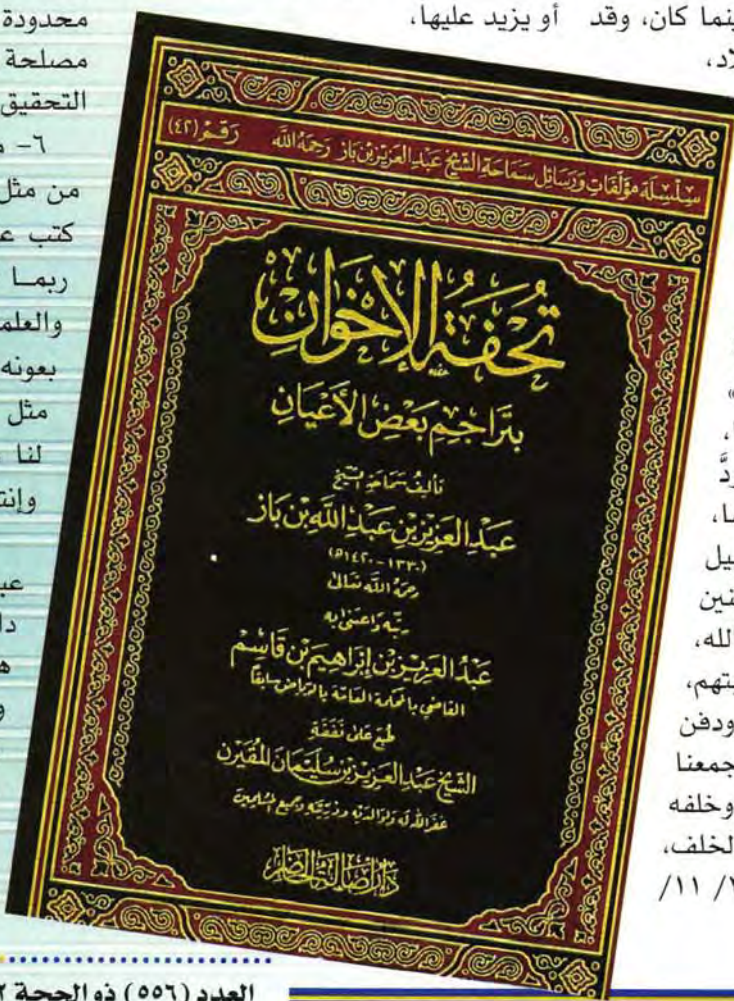 ينما كان، وقد
لاد،
أو يزيد عليها،
محدودة
مصلحة
التحقيق
٦-
من مثل
كتب
ربما
والعلم
بعونه
مثل
لنا
وإنت
عب
دا
سلسلة مؤلفات ورسائل سماحة الشيخ عبد العزيز بن باز رحمه الله
رقم (٤٢)
تحفة الإخوان
بتراجم بعض الأعيان
تأليف سماحة الشيخ
عبد العزيز بن عبد الله بن باز
(١٣٣٠-١٤٢٠هـ)
رحمه الله تعالى
رتبه واعتنى به
عبد العزيز بن إبراهيم بن قاسم
القاضي بالمحكمة العامة بالرياض سابقا
طبع على نفقة
الشيخ عبد العزيز بن سليمان المقيرن
غفر الله له ولوالديه وذريته وجميع المسلمين
دار أصالة الحاضر
ردَّ
ا،
يل
نين
الله،
يتهم،
ودفن
جمعنا
وخلفه
لخلف،
/١١/
العدد (٥٥٦) ذو الحجة